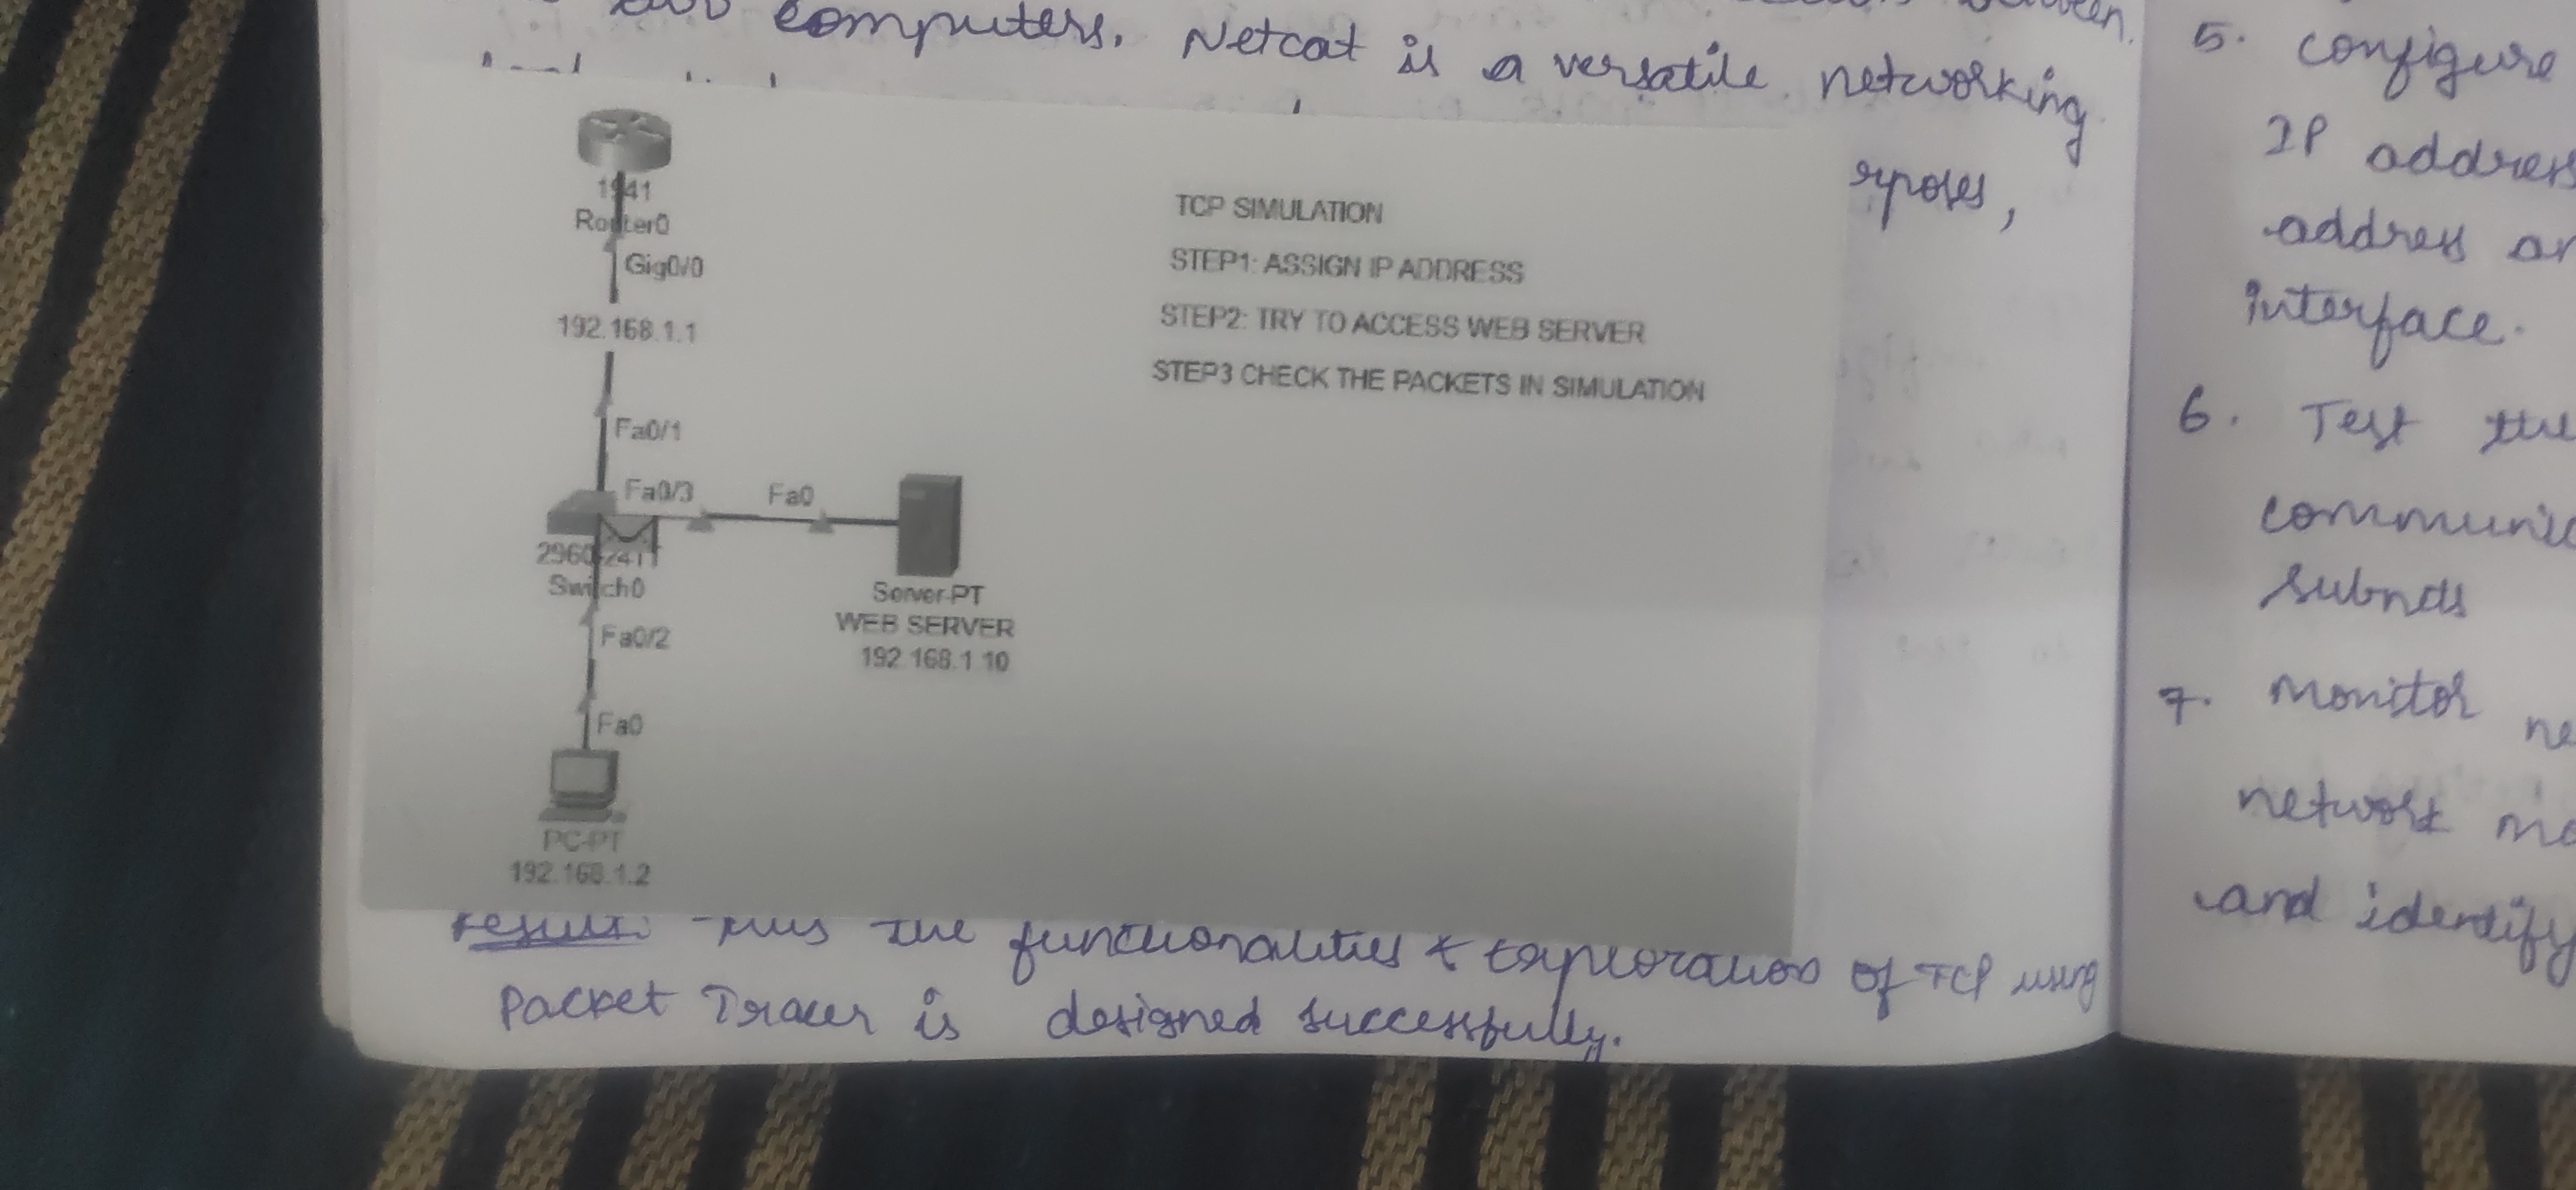 two computers. Netcat is a versatile networking
rposes,
1941
Router0
Gig0/0
192.168.1.1
Fa0/1
Fa0/3
Fa0
2960-24TT
Switch0
Fa0/2
Fa0
PC-PT
192.168.1.2
Server-PT
WEB SERVER
192.168.1.10
TCP SIMULATION
STEP1: ASSIGN IP ADDRESS
STEP2: TRY TO ACCESS WEB SERVER
STEP3 CHECK THE PACKETS IN SIMULATION
result: Thus the functionalities & Exploration of TCP using
Packet Tracer is designed successfully.
5. configure
IP address
address an
interface.
6. Test the
communic
subnets
7. Monitor ne
network mo
and identify